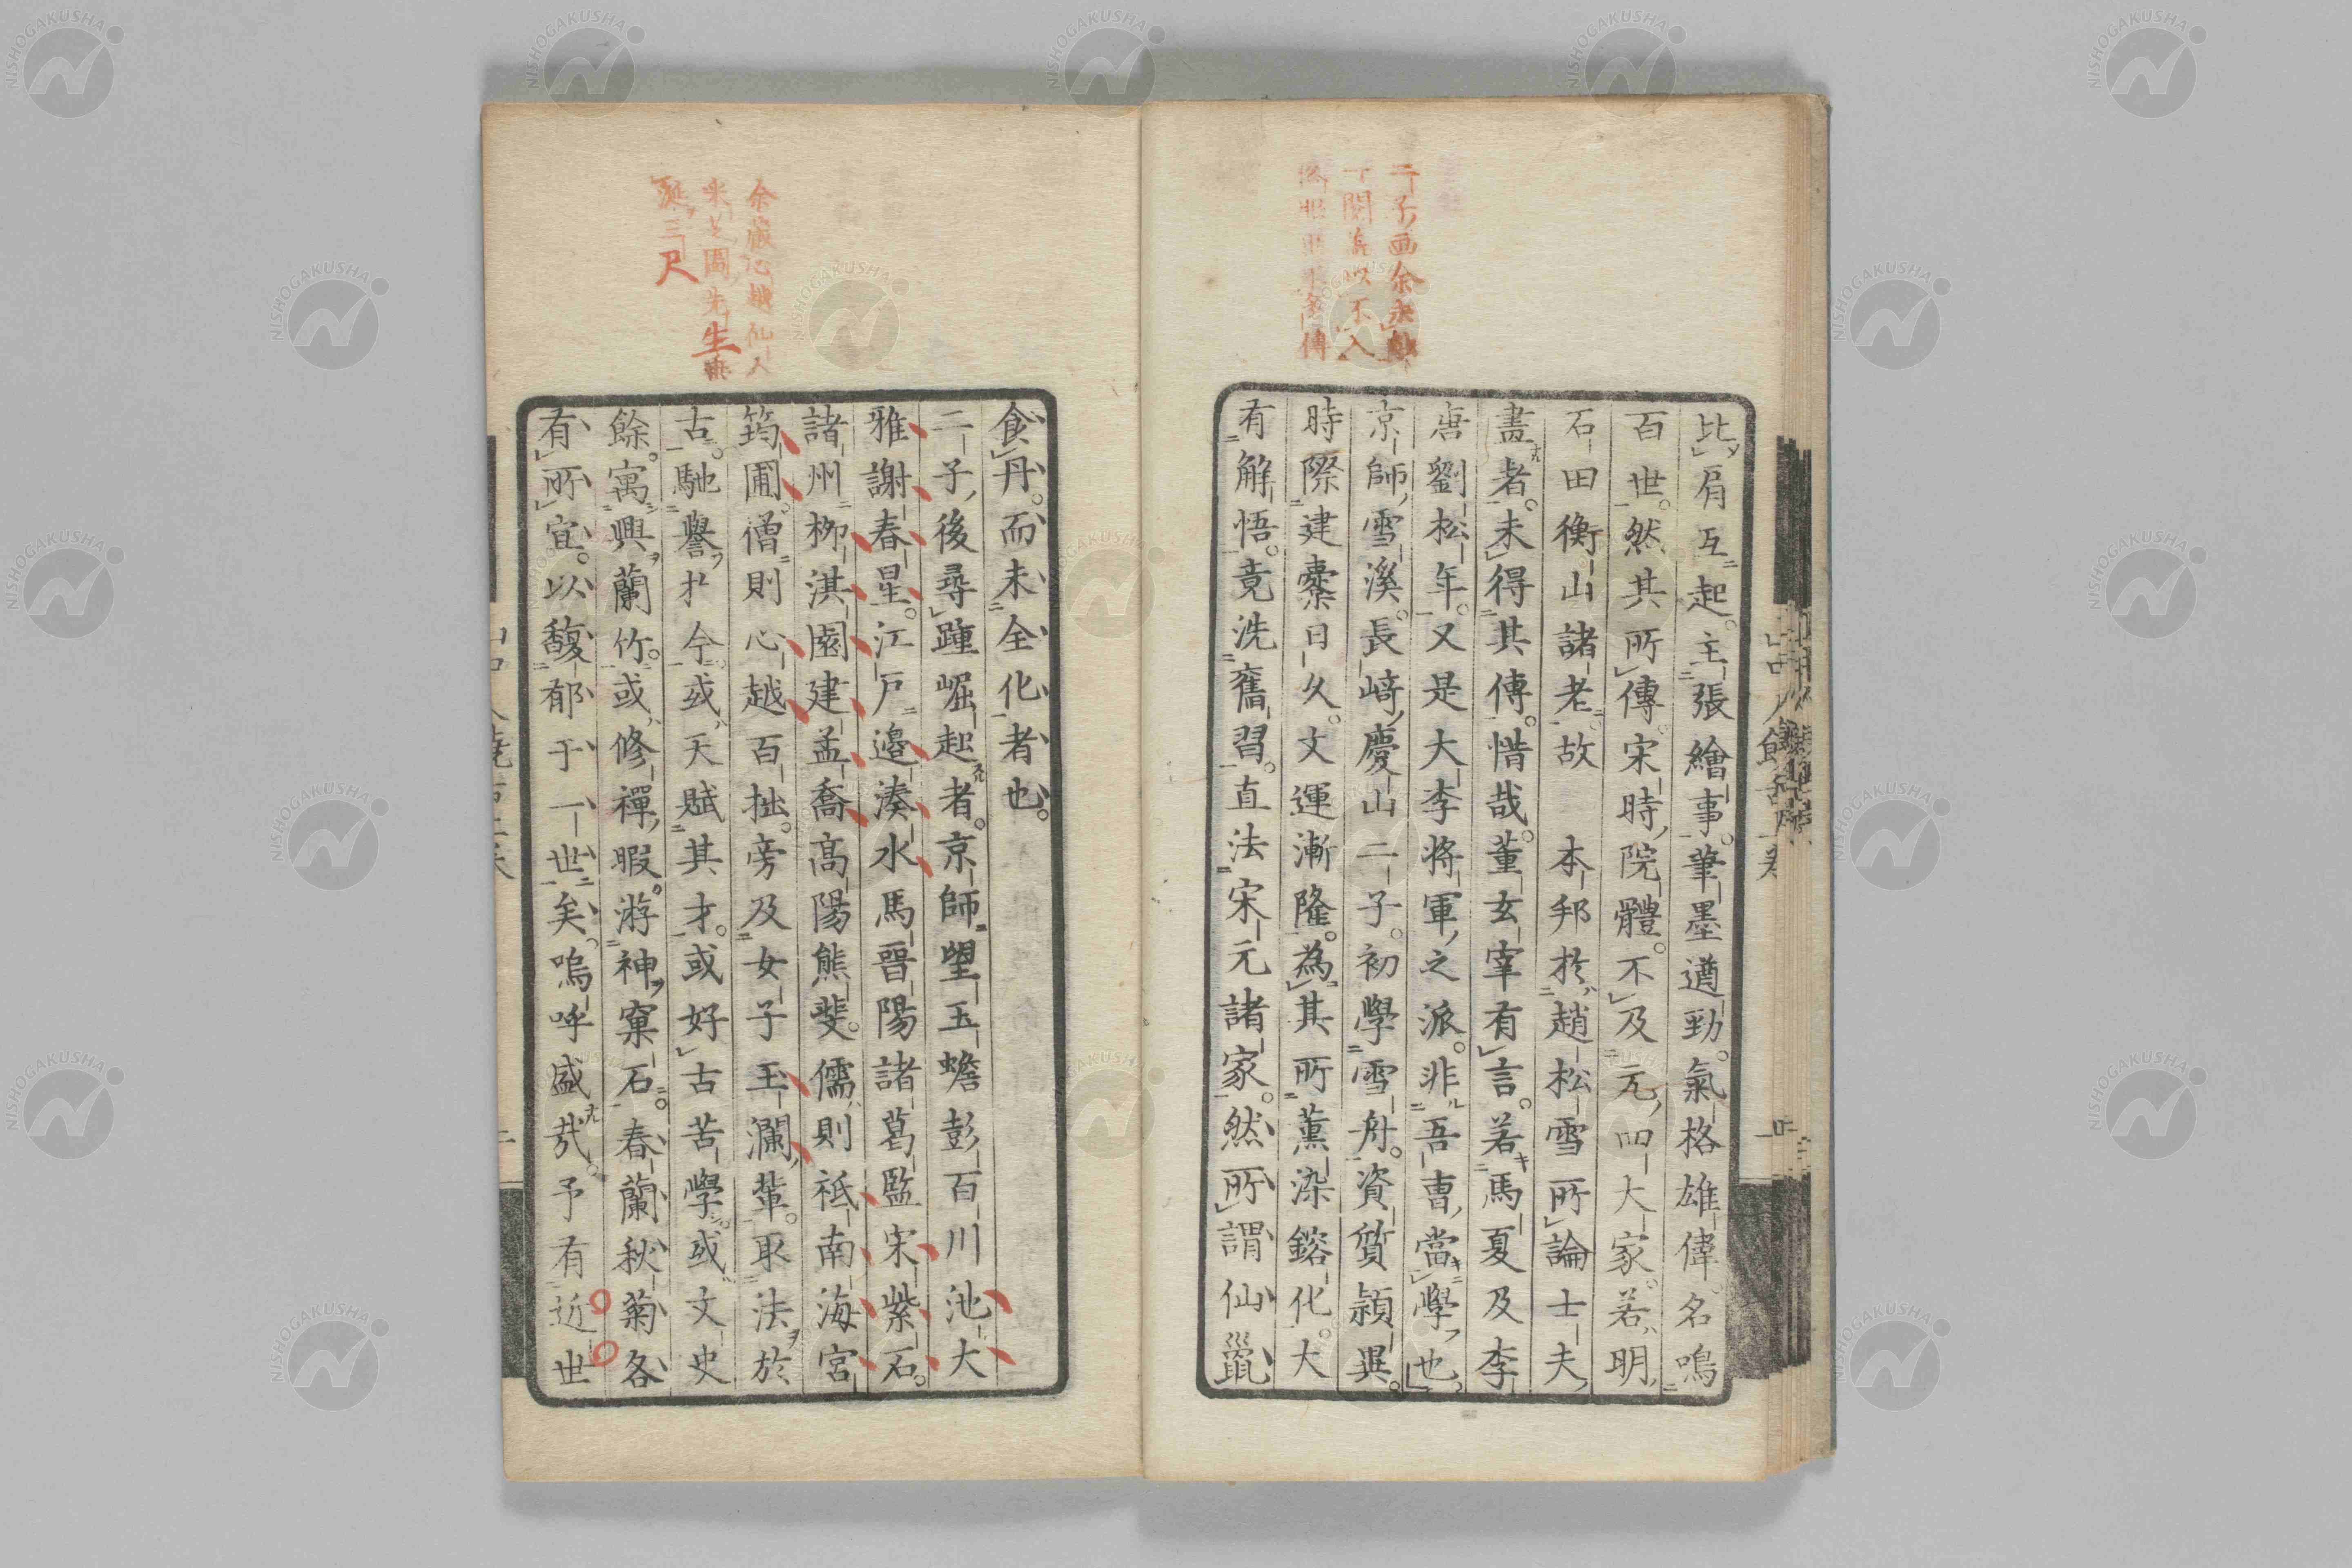 比肩互起主張繪事。筆墨遒勁。氣格雄偉。名鳴
百世。然其所傳。宋時院體。不及元四大家。若明
石田衡山諸老。故　本邦於趙松雪所論士夫
畫者。未得其傳。惜哉。董玄宰有言。若馬夏及李
唐劉松年。又是大李將軍之派。非吾曹當學也。
京師雪溪。長﨑慶山二子。初學雪舟。資質頴異。
時際建櫜日久。文運漸隆。為其所薰染鎔化。大
有解悟。竟洗舊習。直法宋元諸家。然所謂仙鼠
食丹。而未全化者也。
二子後尋踵崛起者。京師望玉蟾彭百川池大
雅謝春星。江戸邉湊水馬晋陽諸葛監宋紫石。
諸州柳淇園建孟喬高陽熊斐。儒則祗南海宮
筠圃。僧則心越百拙。旁及女子玉瀾輩。取法於
古。馳譽于今。或天賦其才。或好古苦學。或文史
餘。寓興蘭竹。或修禪暇。游神窠石。春蘭秋菊各
有所宜。以馥郁于一世矣。嗚呼盛㢤。予有近世
二子画余未
余嚴心越仙人
先生
三尺
NISHOGAKUSHA